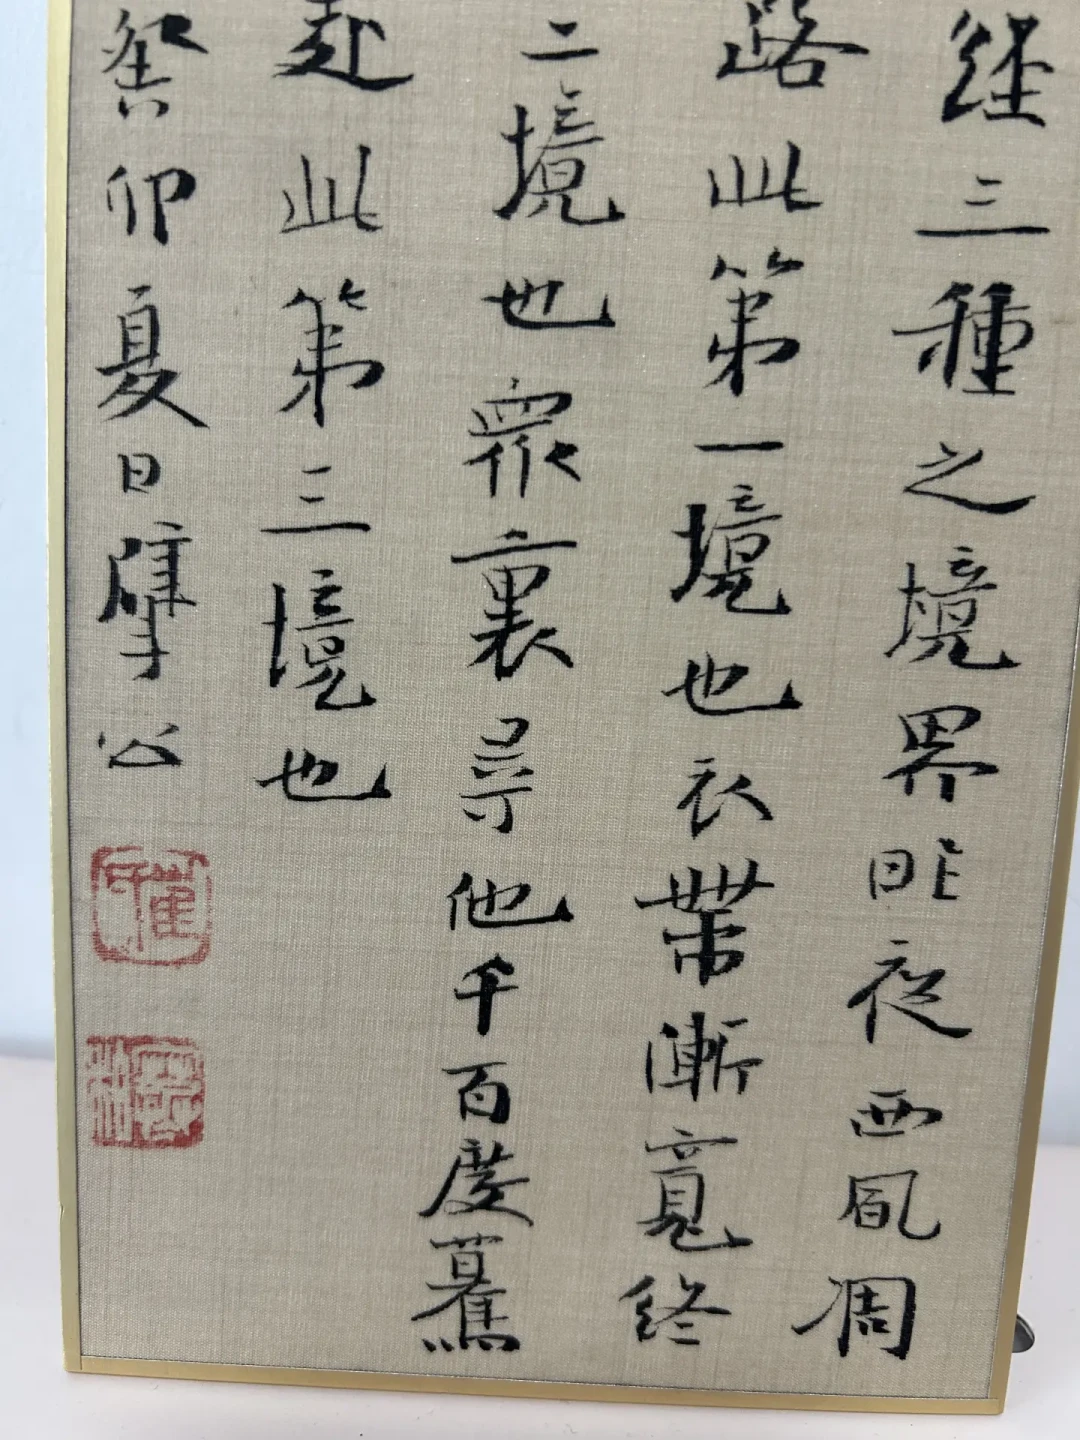 經三種之境界昨夜西風凋
路此第一境也衣帶漸寬終
二境也眾裏尋他千百度驀
此第三境也
癸卯夏日公